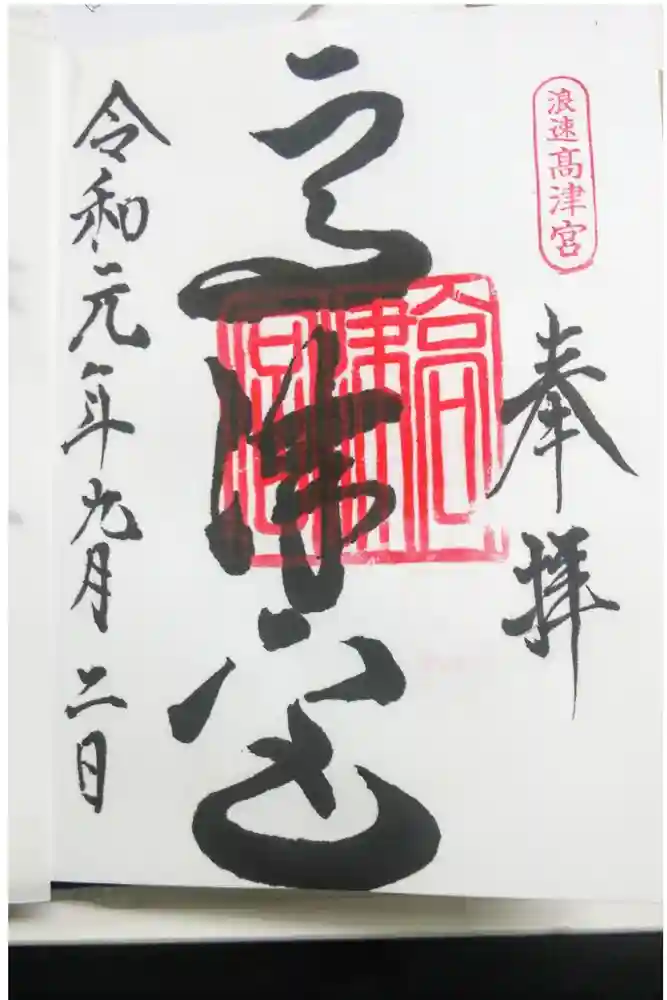 浪速髙津宮
奉拝
高津宮
高津宮
令和元年九月二日